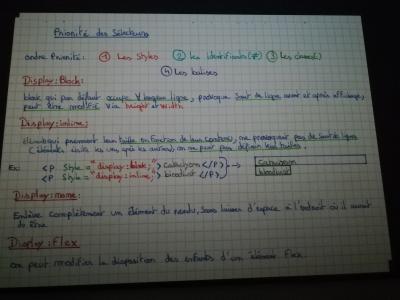 Priorité des Sélecteurs
ordre Priorité: ① Les Styles ② Les identifiants(#) ③ Les classes(.)
④ Les balises
Display: Block:
block qui par défaut occupe ligne, provoque Saut de ligne avant et après affichage,
peut être modifié via height et width.
Display: inline:
élément qui prennent leur taille en fonction de leur contenu, ne provoquent pas de Saut de ligne
les uns après les autres), on ne peut pas définir leur tailles.
Ex: <P Style = "display: block;"> </P>
<P Style = "display: inline;"> </P>
Display: none:
Enlève complètement un élément du rendu, Sans laisser d'espace à l'endroit où il aurait
dû être
Display: Flex
on peut modifier la disposition des enfants d'un élément Flex.